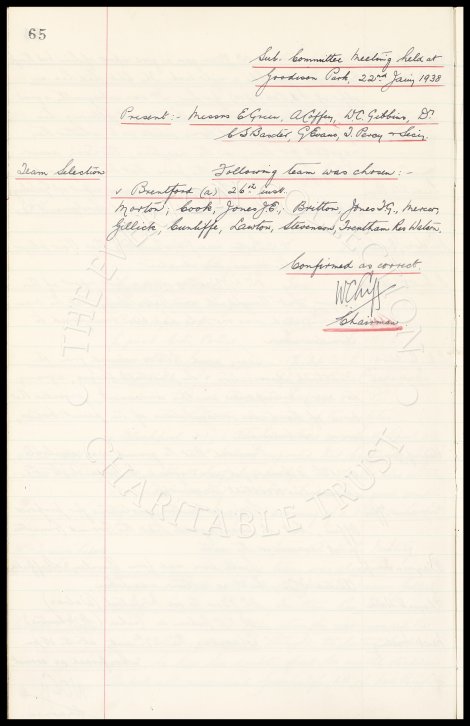 65
Sub. Committee Meeting held at
Goodison Park, 22nd Jany 1938
Present :- Messrs E Green, A Coffey, W.C. Gibbins, Dr
C S Baxter, G Evans, J. Percy & Secy.
Team Selection
Following team was chosen :-
v Brentford (a) 26th inst.
Morton; Cook, Jones J.E.; Britton, Jones T.G., Mercer,
Gillick, Cunliffe, Lawton, Stevenson, Trentham Res Watson.
Confirmed as correct
W C Cuff
Chairman.
THE EVERTON COLLECTION
CHARITABLE TRUST